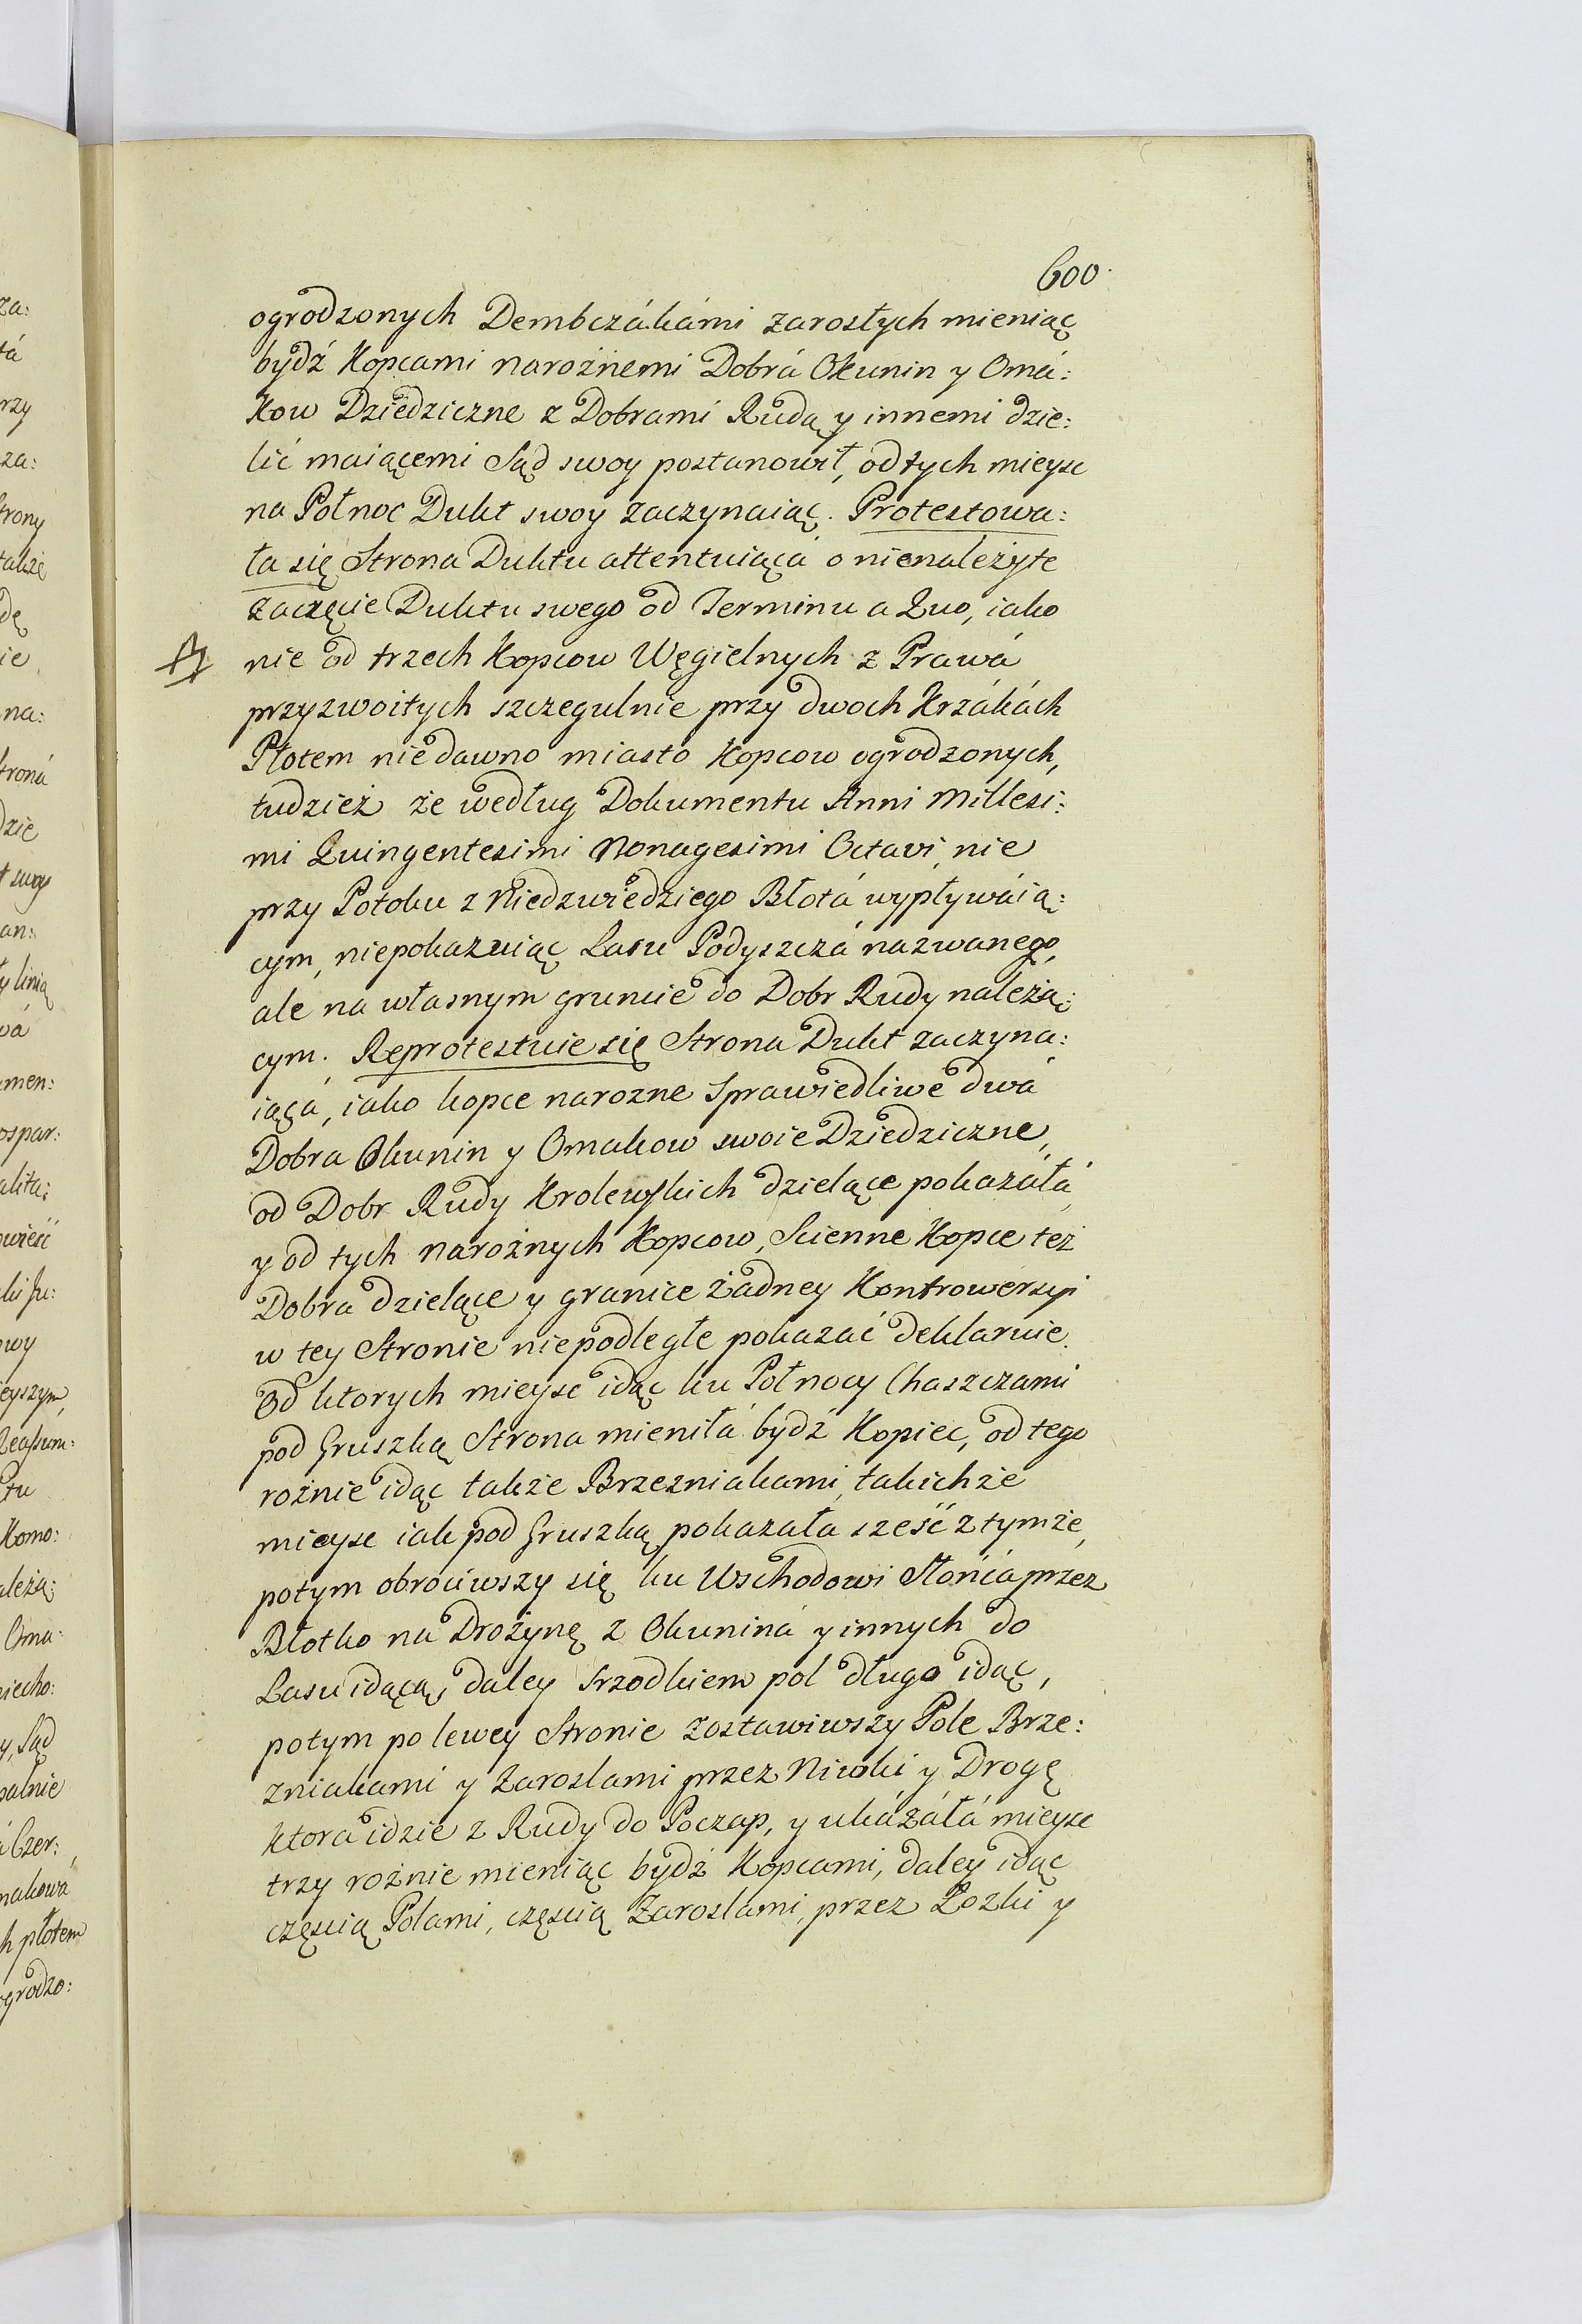 600.
ogrodzonych Dembczákámi zarosłych mieniąc
bydź Kopcami narożnemi Dobrá Okunin y Omá:
kow Dziedziczne z Dobrami Rudą y innemi dzie:
lić maiącemi Sąd swoy postanowił, od tych mieysc
na Połnoc Dukt swoy zaczynaiąc. Protestowa:
ła się Strona Duktu attentuiąca o nienależyte
zaczęcie Duktu swego od Terminu a Quo, iako
nie od trzech Kopcow Węgielnych z Prawá
przyzwoitych szczegulnie przy dwoch Krzákách
Płotem niedawno miasto Kopcow ogrodzonych,
tudzież że według Dokumentu Anni Millesi:
mi Quingentesimi Nonagesimi Octavi, nie
przy Potoku z Niedzwiedziego Błotá wypływáią:
cym, niepokazuiąc Lasu Podyszczá nazwanego,
ale na własnym gruncie do Dobr Rudy należą:
cym. Reprotestuie się Strona Dukt zaczyna:
iącá, iako kopce narozne sprawiedliwe dwá
Dobra Okunin y Omakow swoie Dziedziczne,
od Dobr Rudy Krolewskich dzielące pokazáłá,
y od tych narożnych Kopcow, Scienne Kopce też
Dobra dzielące y granice żadney Kontrowersyi
w tey Stronie niepodległe pokazać deklaruie.
Od ktorych mieysc idąc ku Połnocy Chaszczami
pod Gruszką Strona mieniłá bydź Kopiec, od tego
rożnie idąc także Brzezniakami, takichże
mieysc iak pod Gruszką pokazała sześć z tymże,
potym obrociwszy się ku Wschodowi Słońca przez
Błotko na Drożynę z Okuniná y innych do
Lasu idącą, daley srzodkiem pol długo idąc,
potym po lewey Stronie zostawiwszy Pole Brze:
zniakami y Zaroslami przez Niwki y Drogę
ktora idzie z Rudy do Poczap, y ukázáłá mieysc
trzy rożnie mieniąc bydź Kopcami, daley idąc
częscią Polami, częscią Zaroslami, przez Łozki y